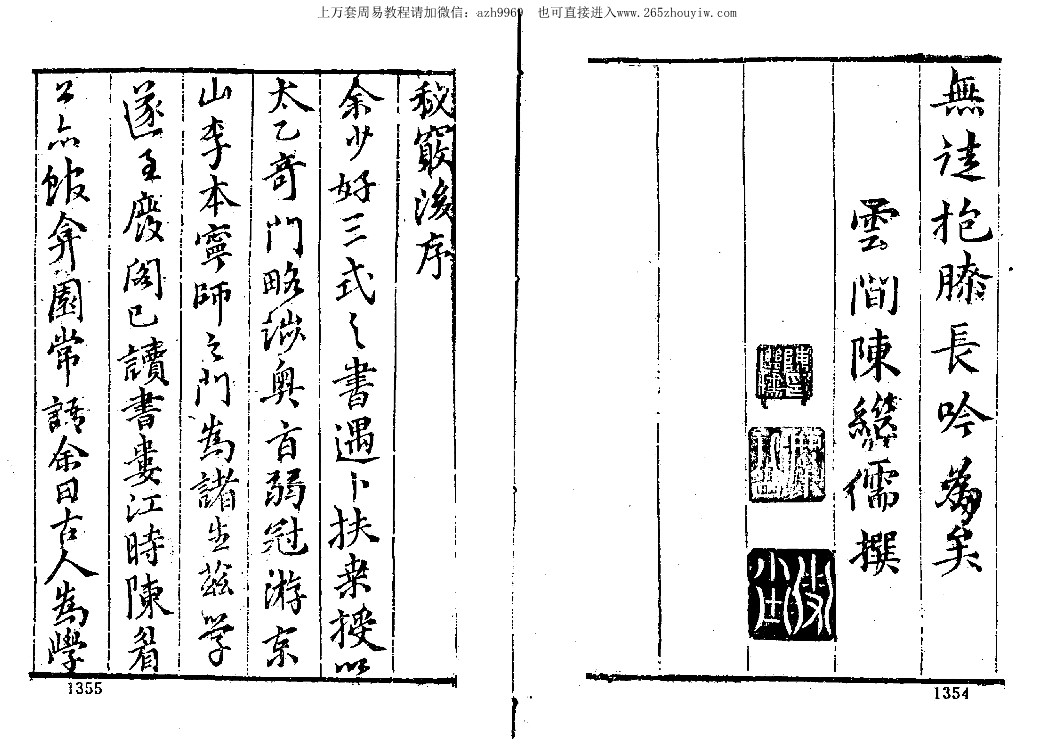 上万套周易教程请加微信：azh9969 也可直接进入www.265zhouyiw.com
無徒抱膝長吟為矣
雲間陳繼儒撰
1354
秘竅後序
余少好三式之書遇卜扶桒授以
太乙奇門略涉奧旨弱冠游京
山李本寧師之門為諸生茲學
遂至廢閣已讀書婁江時陳眉
公亦館弇園常語余曰古人為學
1355